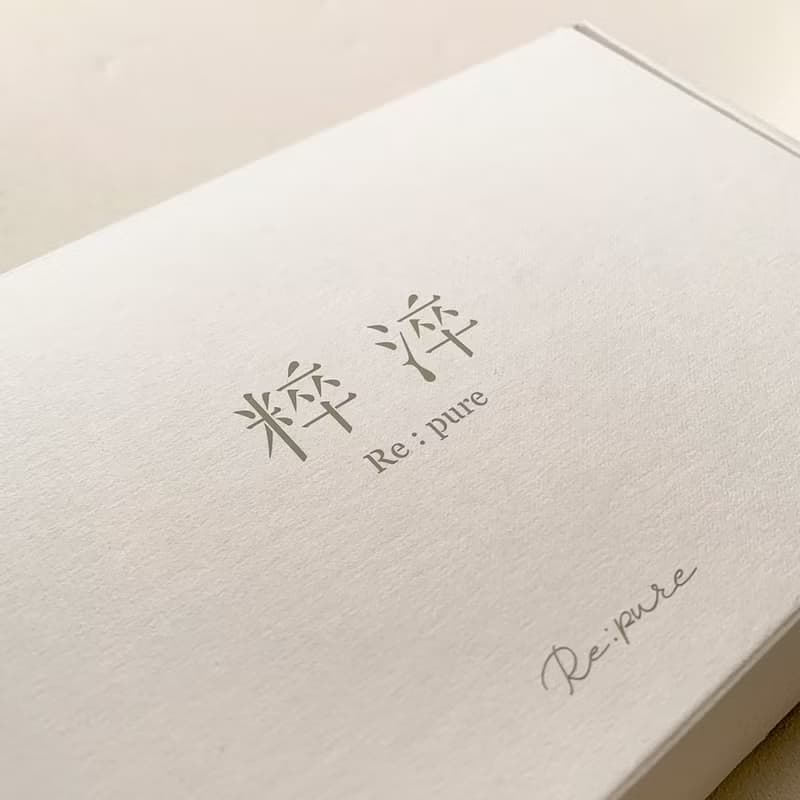 粹淬
Re : pure
Re:pure